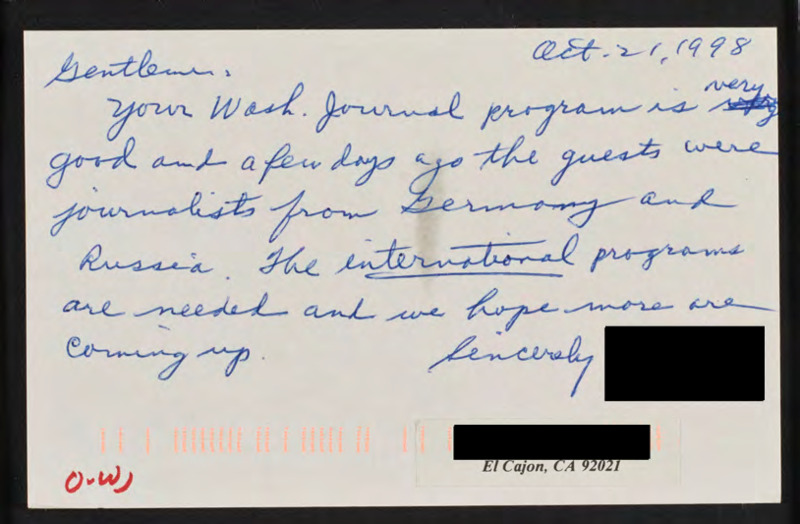 Oct. 21, 1998
Gentlemen:
Your Wash. Journal program is very
good and a few days ago the guests were
journalists from Germany and
Russia. The international programs
are needed and we hope more are
coming up. Sincerely
El Cajon, CA 92021
O-WJ